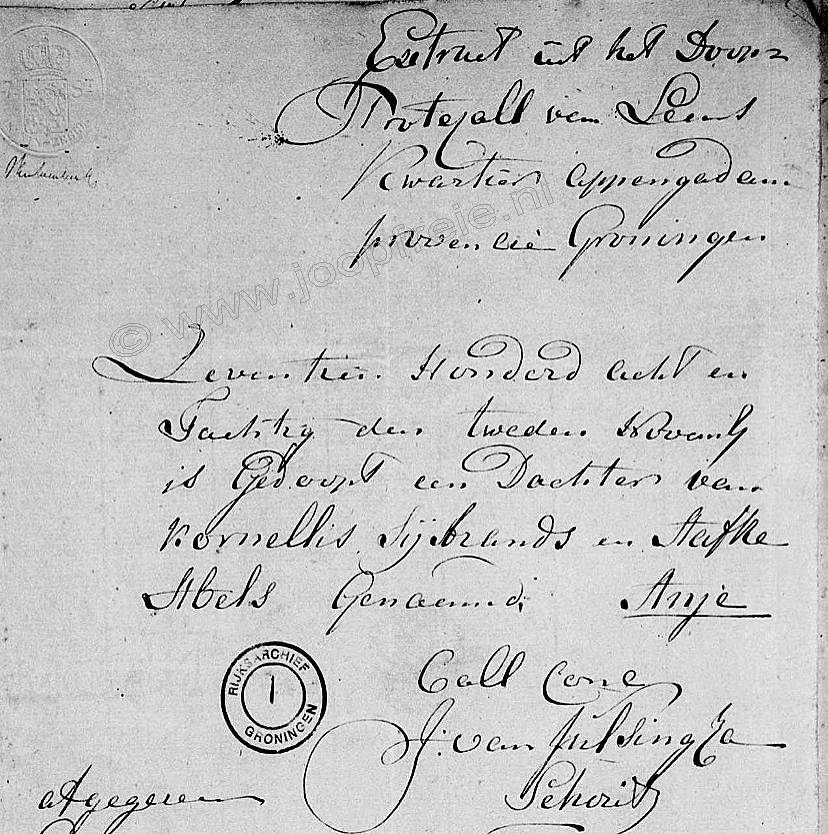 Extract uit het Doop=
Protecoll van Leens
Kwartier appengedam
provencie Groningen
Zeventien Honderd acht en
Tachtig den tweden Novemb
is Gedoopt een Dachter van
Kornellis Sijbrands en Aafke
Abels Genaamd Anje
Coll Conc
J: van Julsingha
Schout
afgegeven
RIJKSARCHIEF
GRONINGEN
© www.joopheije.nl